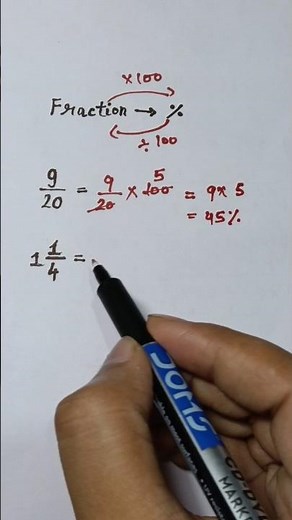 ×100
Fraction → %
÷ 100
9/20 = 9/20 × 100 5 = 9 × 5
= 45%
1 1/4 =
DOMS
MARK